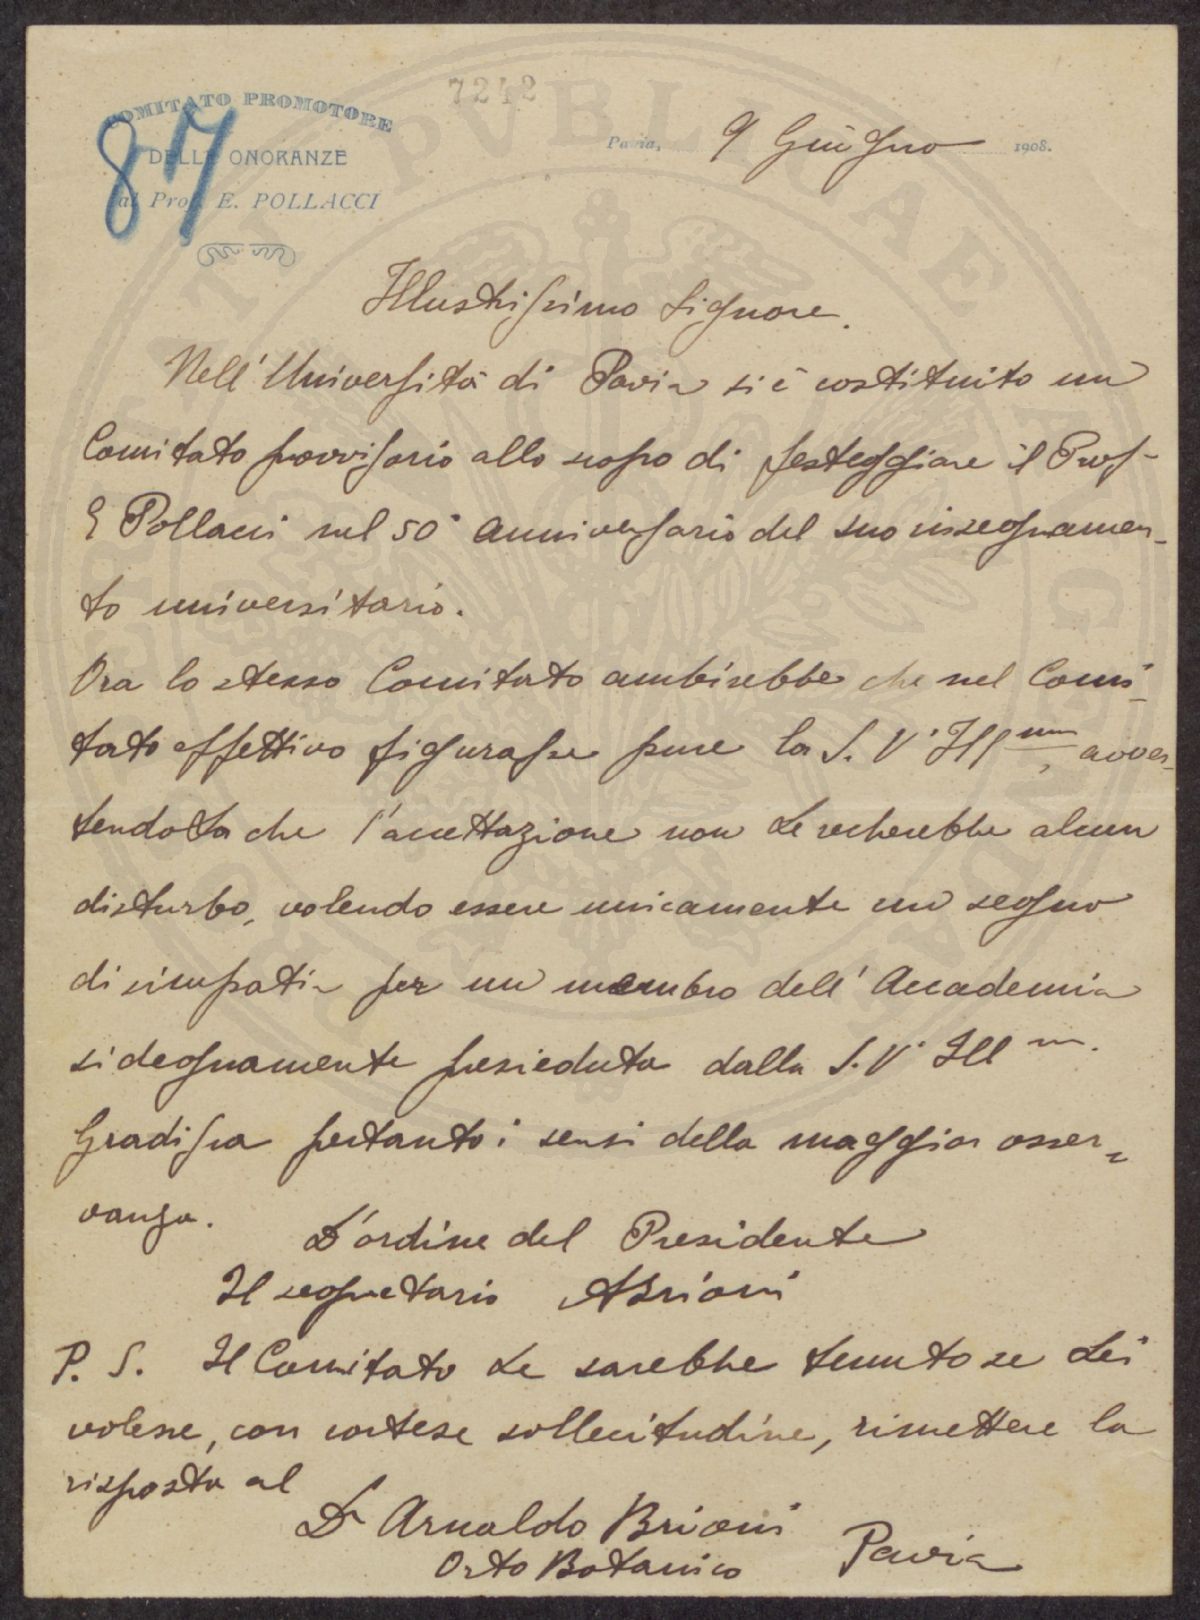 7242
COMITATO PROMOTORE
DELLE ONORANZE
al Prof. E. POLLACCI
87
Pavia, 9 Giugno 1908.
Illustrissimo Signore.
Nell'Università di Pavia si è costituito un
Comitato provvisorio allo scopo di festeggiare il Prof
E Pollacci nel 50° anniversario del suo insegnamen-
to universitario.
Ora lo stesso Comitato ambirebbe che nel Comi-
tato effettivo figurasse pure la S. V. Ill ma, avver-
tendola che l'accettazione non Le recherebbe alcun
disturbo, volendo essere unicamente un segno
di simpatia per un membro dell'Accademia
sì degnamente presieduta dalla S. V. Ill m.
Gradisca pertanto i sensi della maggior osser-
vanza.
D'ordine del Presidente
Il segretario ABrioni
P. S. Il Comitato Le sarebbe tenuto se Lei
volesse, con cortese sollecitudine, rimettere la
risposta al
Dr Arnaldo Brioni
Orto Botanico Pavia